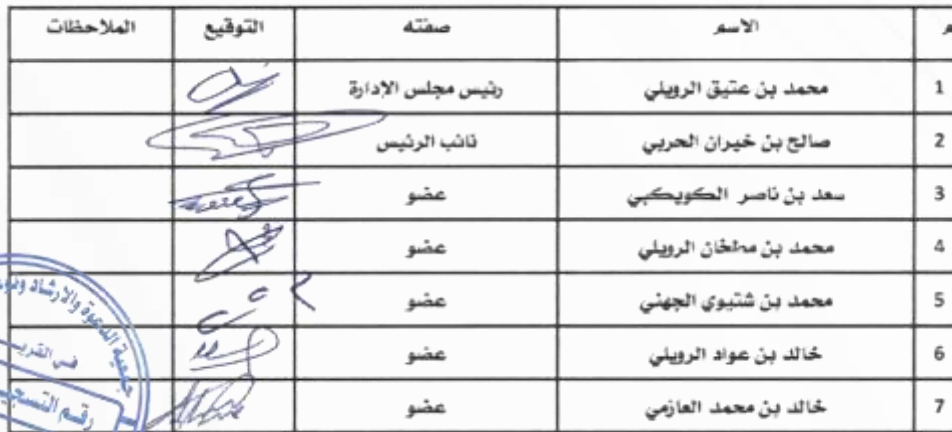 م الاسم صفته التوقيع الملاحظات
1 محمد بن عتيق الرويلي رئيس مجلس الإدارة
2 صالح بن خيران الحربي نائب الرئيس
3 سعد بن ناصر الكويكبي عضو
4 محمد بن مطخان الرويلي عضو
5 محمد بن شتيوي الجهني عضو
6 خالد بن عواد الرويلي عضو
7 خالد بن محمد العازمي عضو
جمعية الدعوة والارشاد
في
رقم